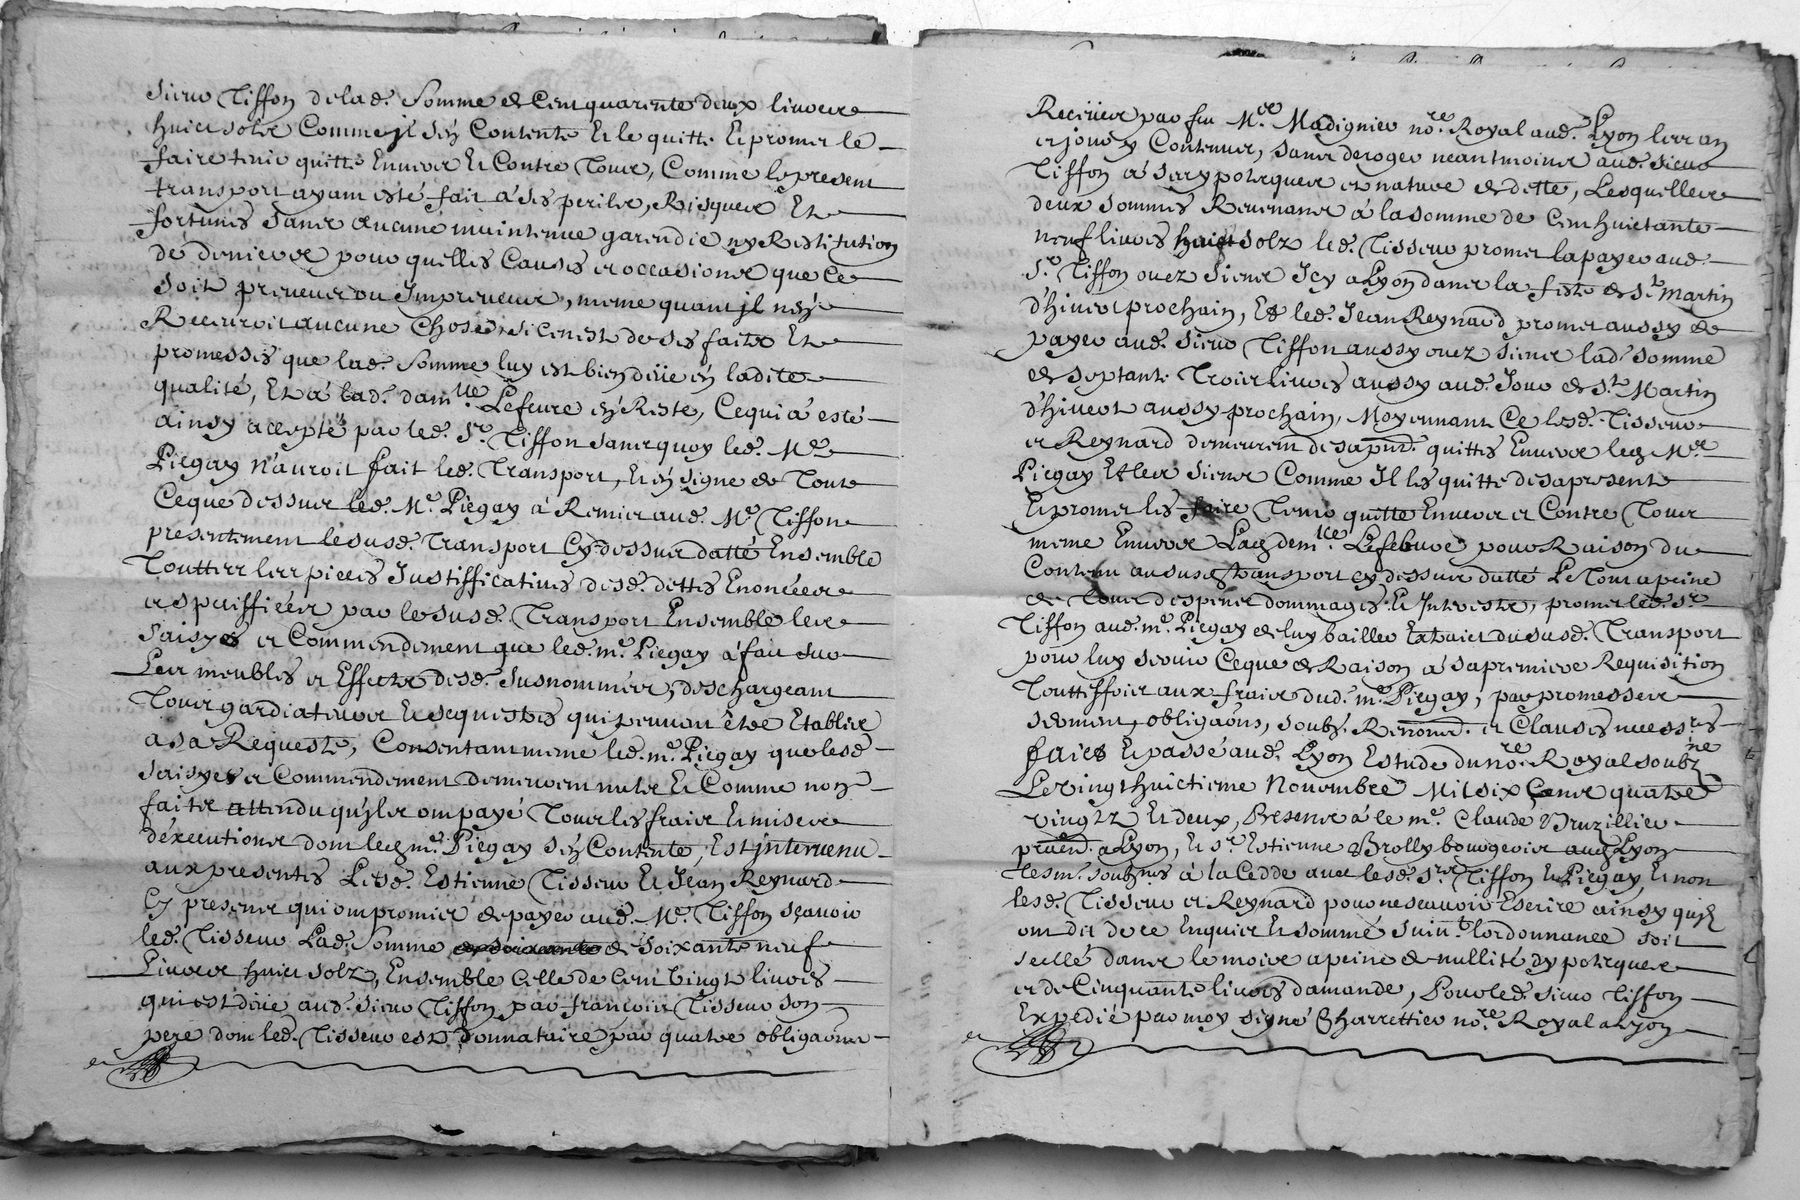 sieur Tiffon de lad. somme de Cent quarente deux livres
huict solz Comme jl s'en Contente Et le quitte Et promet le
faire tenir quitte Envers Et Contre Tous, Comme le present
transport ayant esté fait à ses perilz, Risques Et
fortunes sans aucune maintenue garendie ny Restitution
de deniers pour quelles Causes et occasions que Ce
soit preveues ou Impreveues, meme quant jl n'en
Recevroit aucune Chose, si ce n'est de ses faits Et
promesses que lad. somme luy est bien deüe en ladite
qualité, Et à lad. dam.lle Lefevre en Reste, Ce qui à esté
ainsy accepté par led. Sr. Tiffon sans quoy led. Me.
Piegay n'auroit fait led. Transport, Et en signe de Tout
Ce que dessus led. Me. Piegay à Remis aud. Me. Tiffon
presentement le susd. Transport Cy dessus datté Ensemble
Touttes les pieces Justifficatives desd. dettes Enoncées
et speciffiées par le susd. Transport Ensemble les
saisyes et Commendement que led. me. Piegay à fait sur
Les meubles et Effects desd. susnommés, deschargeant
Tous gardiateurs Et sequestres qui peuvent être Etablis
a sa Requeste, Consentant meme led. me. Piegay que lesd.
saisyes et Commendement demeurent nulz Et Comme non
faits attendu qu'ils ont payé Tous les frais Et mises
d'éxecutions dont led. me. Piegay s'en Contente, Est jntervenu
aux presentes Lesd. Estienne Tisseur Et Jean Reynard
Cy presents qui ont promis de payer aud. Me. Tiffon sçavoir
led. Tisseur Lad. somme de soixante neuf
Livres huict solz, Ensemble Celle de Cent vingt livres
qui est deüe aud. sieur Tiffon par francois Tisseur son
pere dont led. Tisseur est donnataire par quatre obligaõns
Receües par feu Me. Madignier nore. Royal aud. Lyon les an
et jour y Contenus, sans deroger neantmoins aud. sieur
Tiffon à ses ypoteques et nature de dette, Lesquelles
deux sommes Revenants à la somme de Cent huictante
neuf livres huict solz led. Tisseur promet la payer aud.
Sr. Tiffon ou ez siens Jcy a Lyon dans la feste de St. Martin
d'hivert prochain, Et led. Jean Reynard promet aussy de
payer aud. sieur Tiffon aussy ou ez siens lad. somme
de septante Trois livres aussy aud. Jour de St. Martin
d'hivert aussy prochain, Moyennant Ce lesd. Tisseur
et Reynard demeurent des a pnt. quittes Envers led. Me.
Piegay Et les siens Comme Il les quitte des a present
Et promet les faire Tenir quitte Envers et Contre Tous
meme Envers Lad. dem.lle Lefebure pour Raison du
Contenu au susd. transport cy dessus datté Le Tout a peine
de Tous despens dommages Et Interests, promet led. sr.
Tiffon aud. me. Piegay de luy bailler Extraict du susd. Transport
pour luy servir Ce que de Raison à sa premiere Requisition
Touttesfois aux frais dud. me. Piegay, par promesses
serment, obligaõns, soubz. Renonc. et Clauses necessres.
faict Et passé aud. Lyon Estude du nore. Royal soubzne
Le vingt huictieme Novembre Mil six Cens quatre
vingtz Et deux, Presens à ce me. Claude Bruzillier
a Lyon, Et sr. Estienne Brolly bourgeois aud. Lyon
Tesm. soubznés à la Cedde avec lesd. srs. Tiffon Et Piegay, Et non
lesd. Tisseur et Reynard pour ne scavoir Escrire ainsy qu'jlz
ont dit de ce Enquis Et sommés suivt. l'ordonnance soit
scellé dans le mois a peine de nullité d'ypoteques
et de Cinquante livres d'amande, Pour led. sieur Tiffon
Expedié par moy signé Charrettier nore. Royal a Lyon